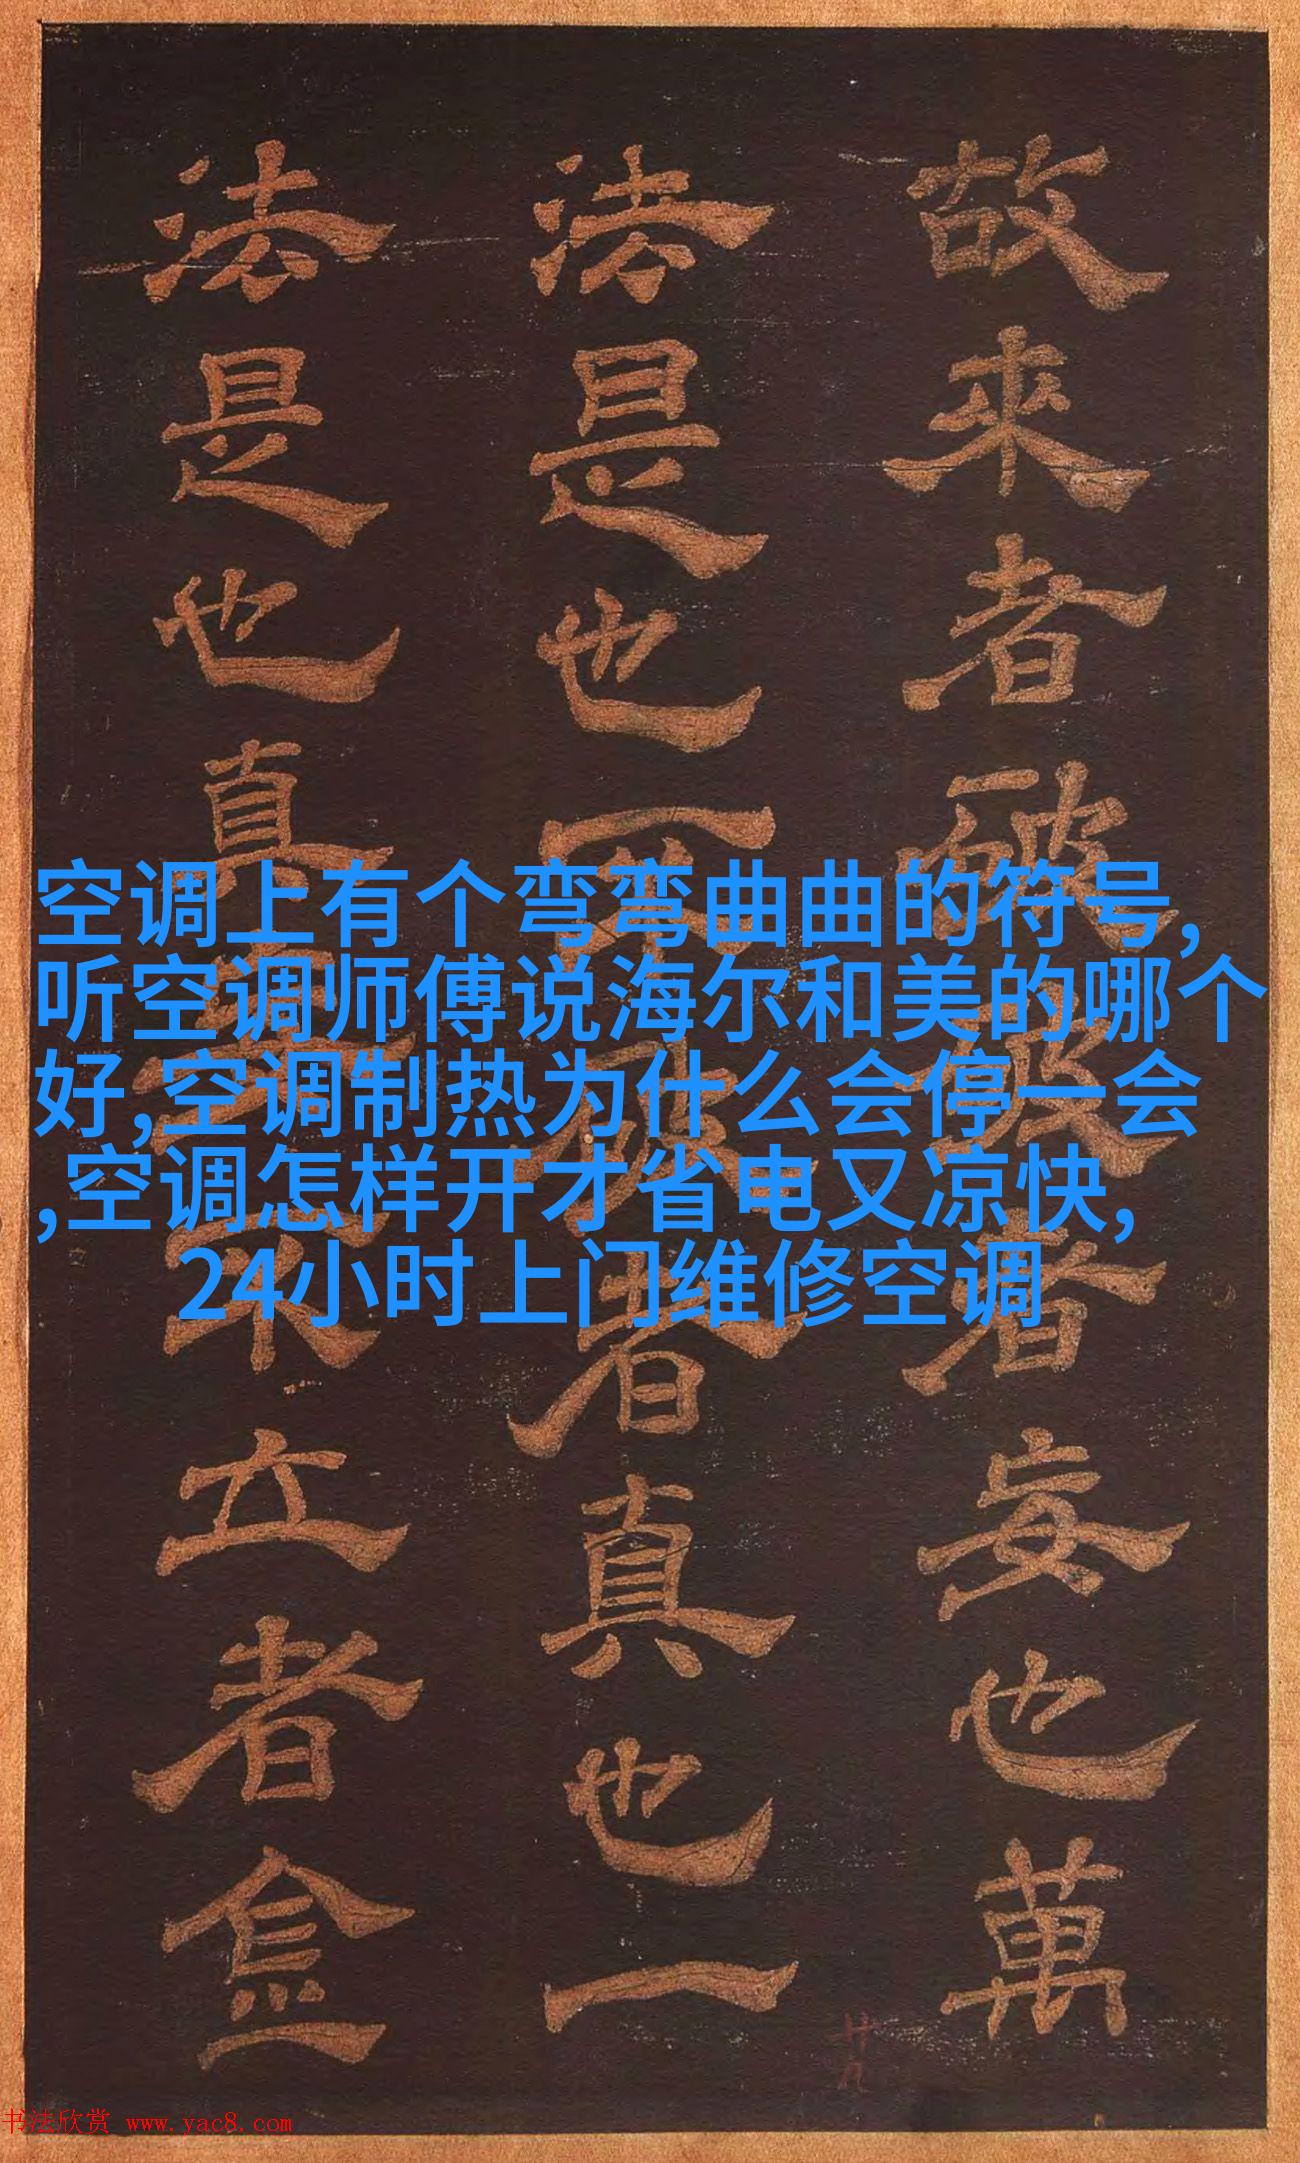 故來者破者妄也萬
法是也不破者真也一
法是也真不立者
空调上有个弯弯曲曲的符号,
听空调师傅说海尔和美的哪个
好,空调制热为什么会停一会
,空调怎样开才省电又凉快,
24小时上门维修空调
廿九
书法欣赏 www.yac8.com